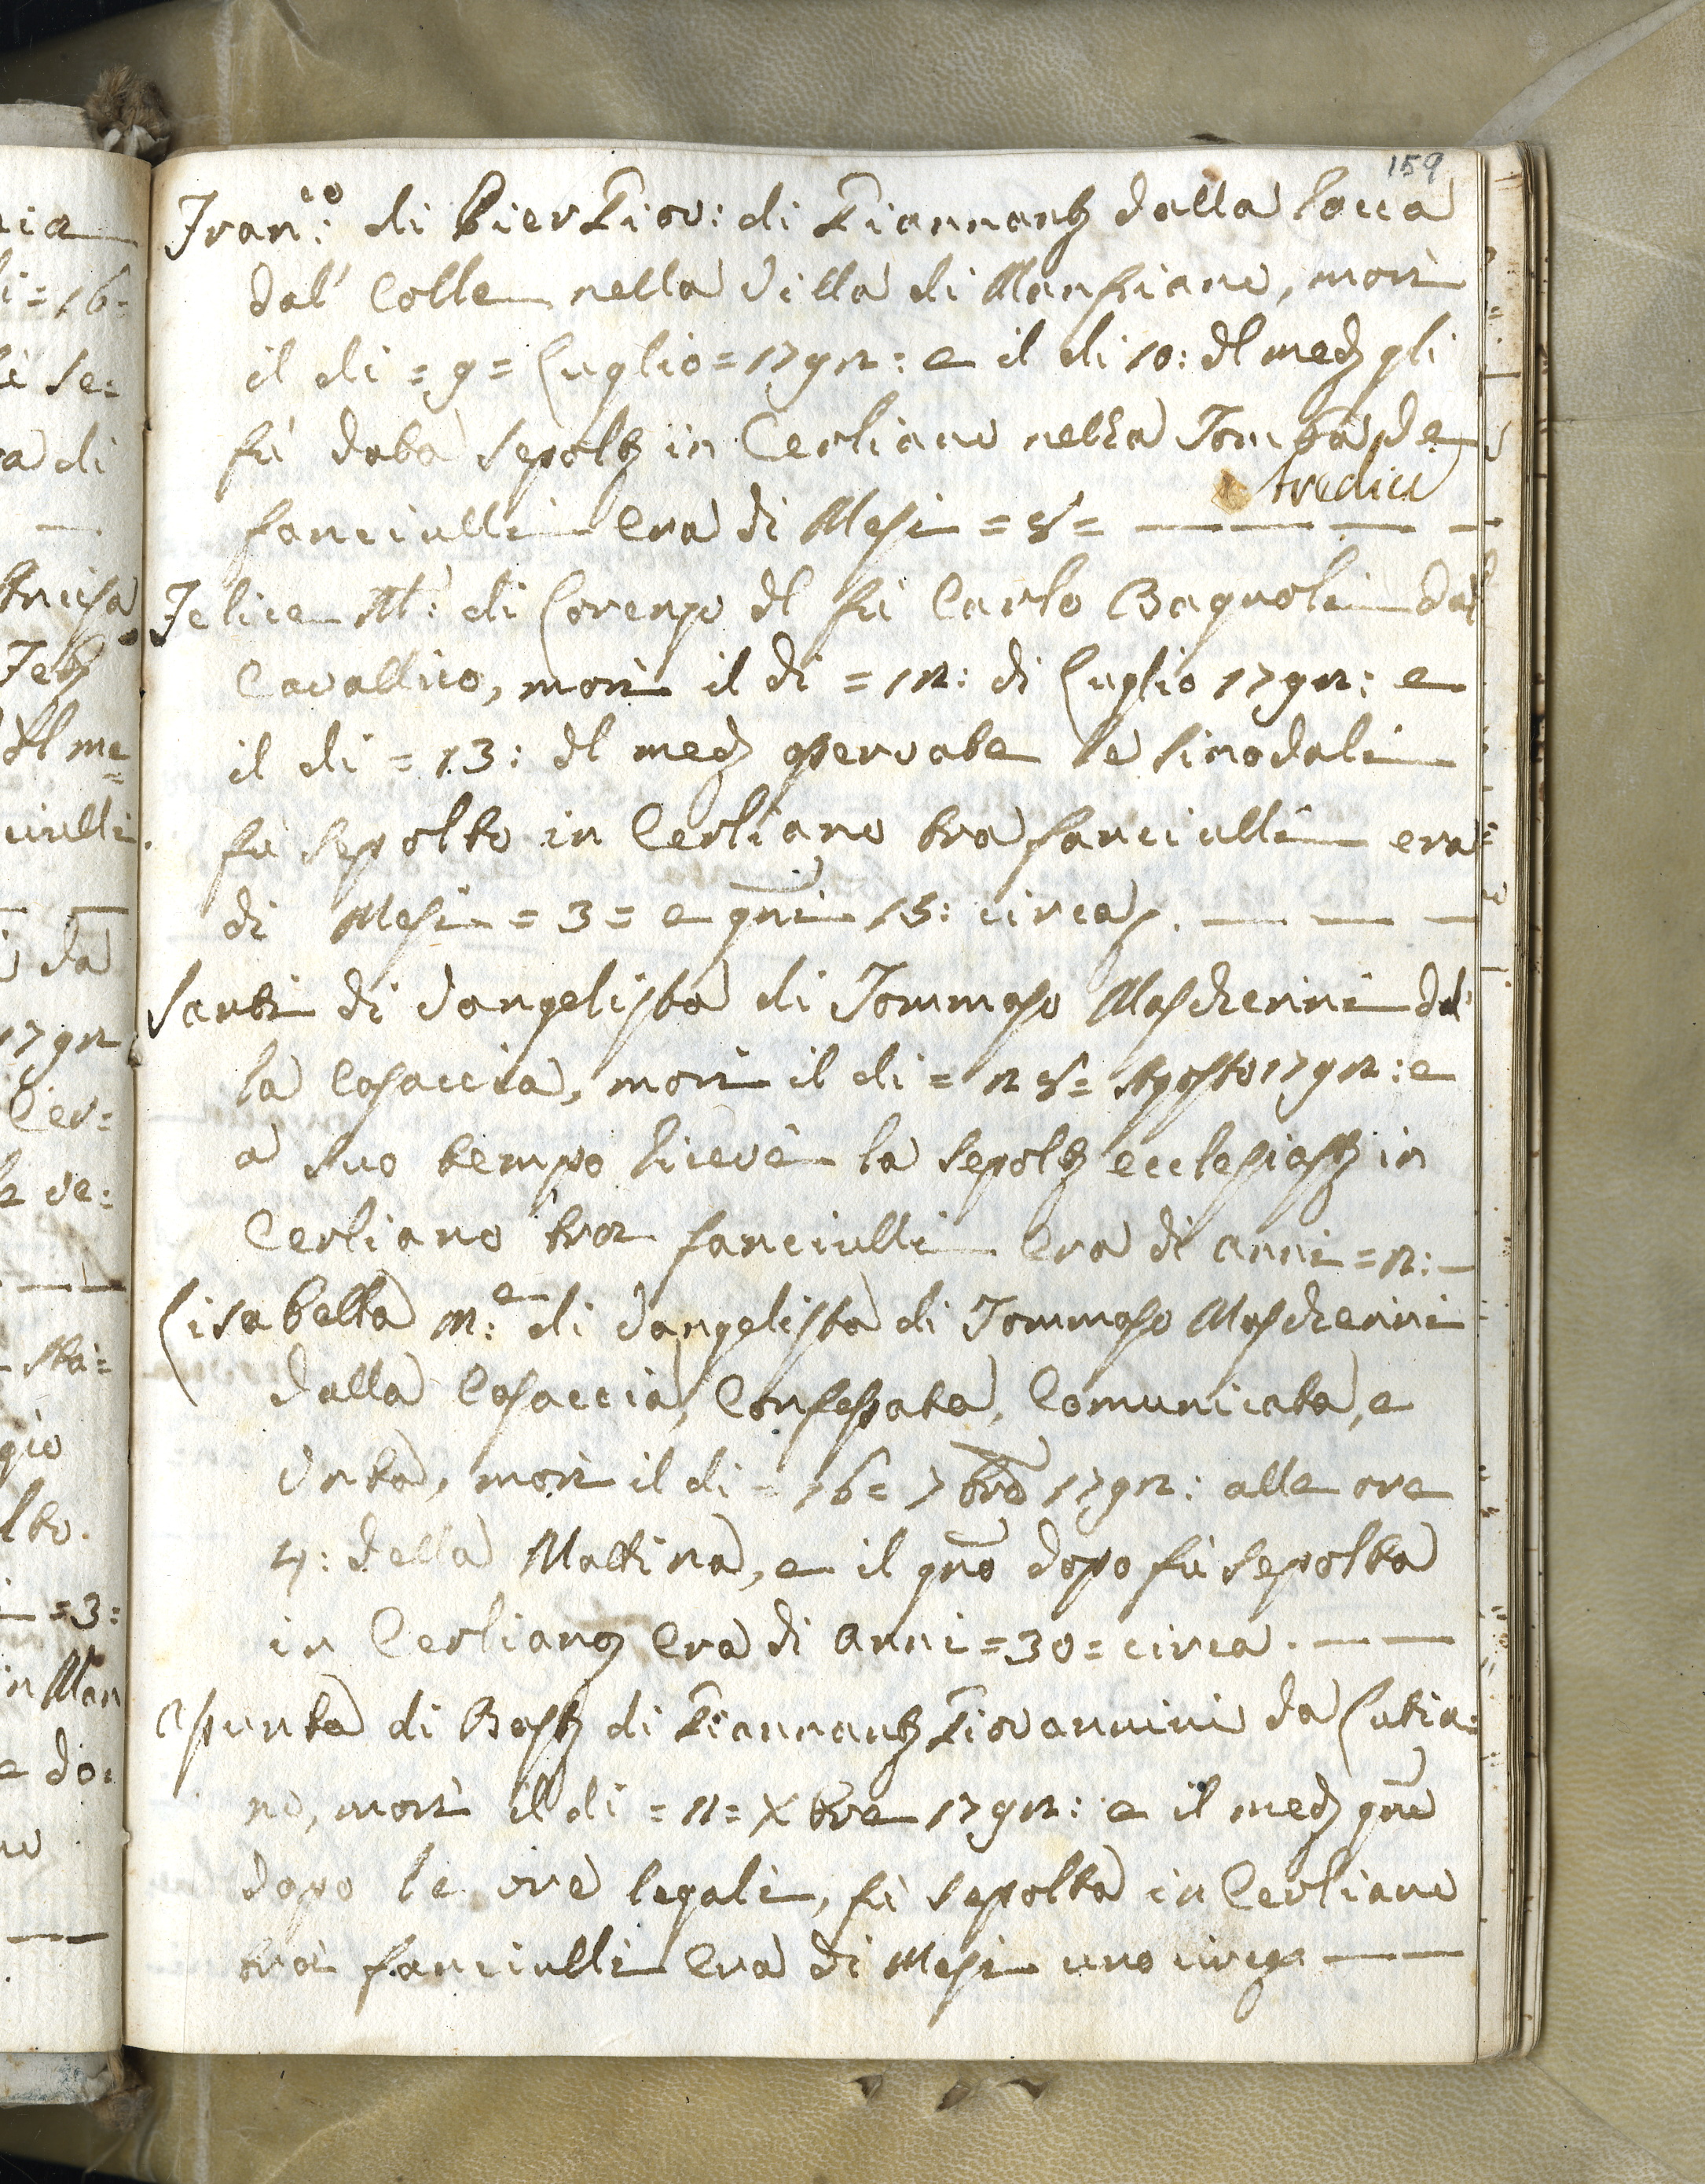 159
Fran:co di Pier Giov: di Giannantº dalla Rocca
dal' Colle nella Villa di Manfriano, morì
il di = 9 = Luglio = 1792: e il di 10: dl medº gli
fù data sepoltª in Cerliano nella Tomba de
tredici
fanciulli era di Mesi = 8 =
Felice Mª: di Lorenzo dl fù Carlo Bagnoli dal
Cavallico, morì il di = 12: di Luglio 1792: e
il di = 13: dl medº osservate le sinodali
fù sepolto in Cerliano tra fanciulli era
di Mesi = 3 = e gni 15: circa.
Santi di Vangelista di Tommaso Mascherini dal
la Casaccia, morì il di = 28 = Agosto 1792: e
a suo tempo riceve la sepoltª ecclesiastª in
Cerliano tra fanciulli era di anni = 2:
Lisabetta M:e di Vangelista di Tommaso Mascherini
dalla Casaccia, Confessata, Comunicata, e
Unta, morì il di = 16 = 7bre 1792: alle ore
4: della Mattina, e il gno dopo fù sepolta
in Cerlianº era di anni = 30 = circa.
Assunta di Bastº di Giannantº Giovannini da Lutia=
no, morì il di = 11 = Xbre 1792: e il medº gno
dopo le ore legali, fù sepolta in Cerliano
tra fanciulli era di Mesi uno circa